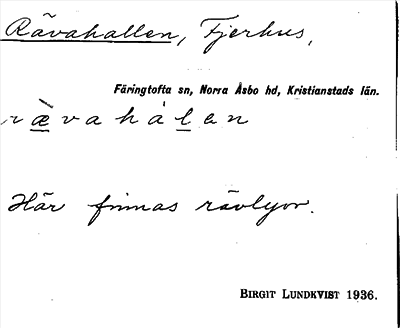 Rävahallen, Fjerhus,
Färingtofta sn, Norra Åsbo hd, Kristianstads län.
r æ̀ v a h á l e n
Här finnas rävlyor.
BIRGIT LUNDKVIST 1936.